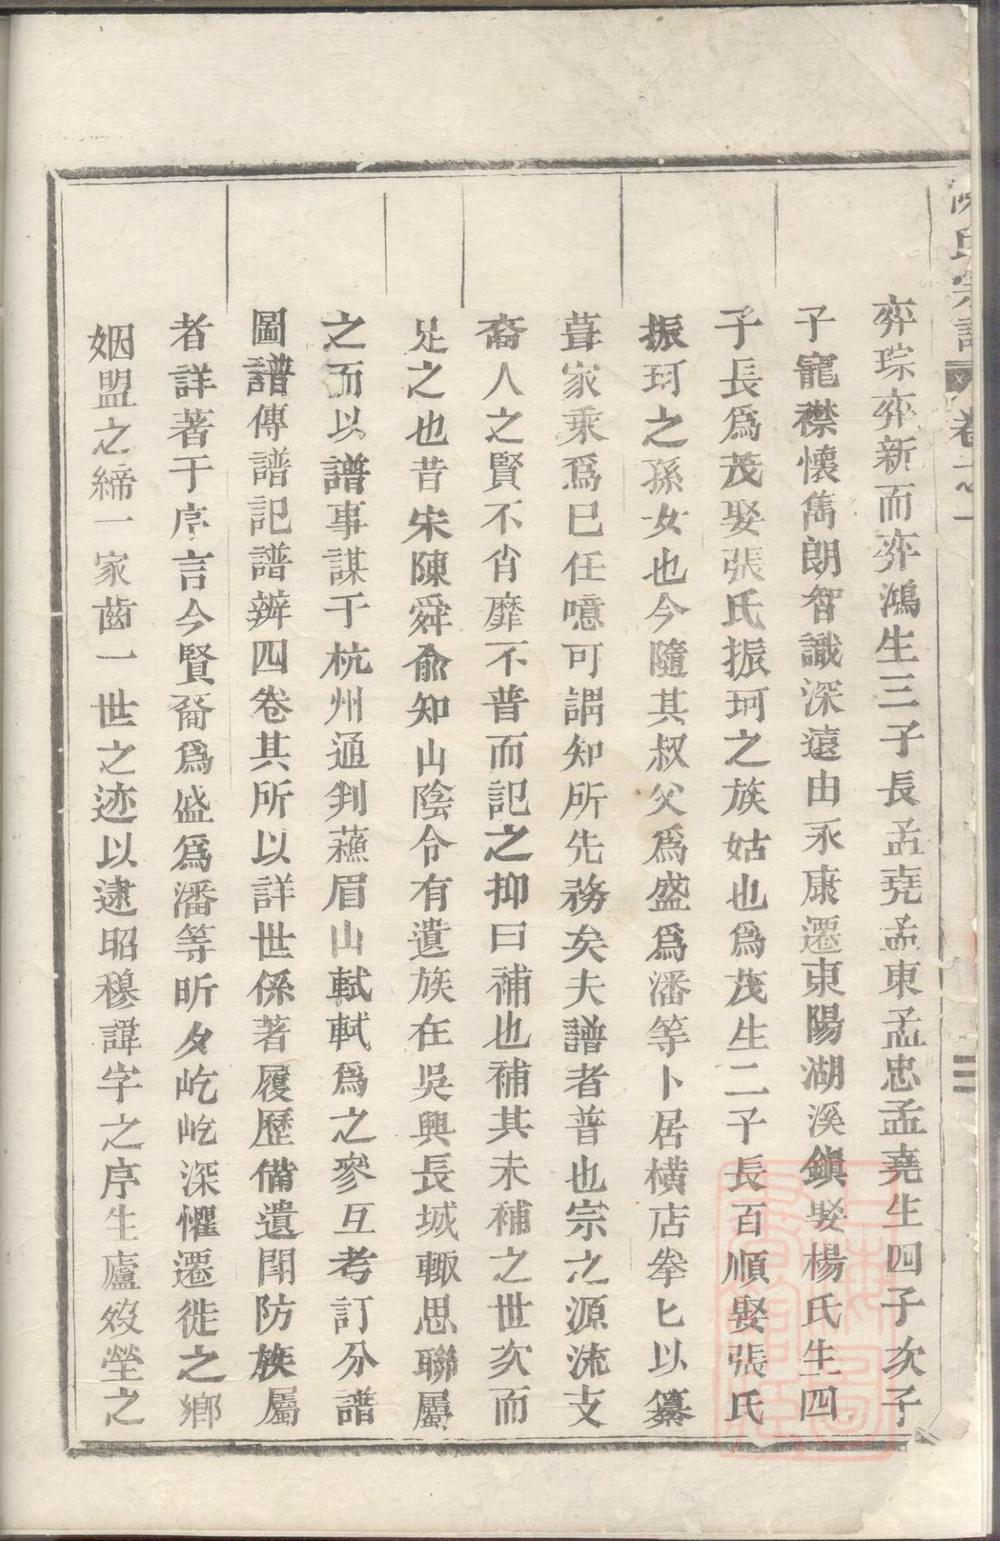 陳氏宗譜 卷之一 二
弈琮弈新而弈鴻生三子長孟堯孟東孟忠孟堯生四子次子
子寵襟懷雋朗智識深遠由永康遷東陽湖溪鎭娶楊氏生四
子長爲茂娶張氏振珂之族姑也爲茂生二子長百順娶張氏
振珂之孫女也今隨其叔父爲盛爲潘等卜居橫店拳匕以纂
葺家乘爲巳任噫可謂知所先務矣夫譜者普也宗之源流支
裔人之賢不肖靡不普而記之抑曰補也補其未補之世次而
足之也昔宋陳舜俞知山陰令有遺族在吳興長城輙思聯屬
之而以譜事謀于杭州通判蘓眉山軾軾爲之參互考訂分譜
圖譜傳譜記譜辨四卷其所以詳世係著履歷備遺閗防族屬
者詳著于序言今賢裔爲盛爲潘等昕夕屹屹深懼遷徙之鄉
姻盟之締一家齒一世之迹以逮昭穆諱字之序生廬歿塋之